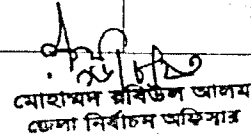 মোহাম্মদ রবিউল আলম
জেলা নির্বাচন অফিসার